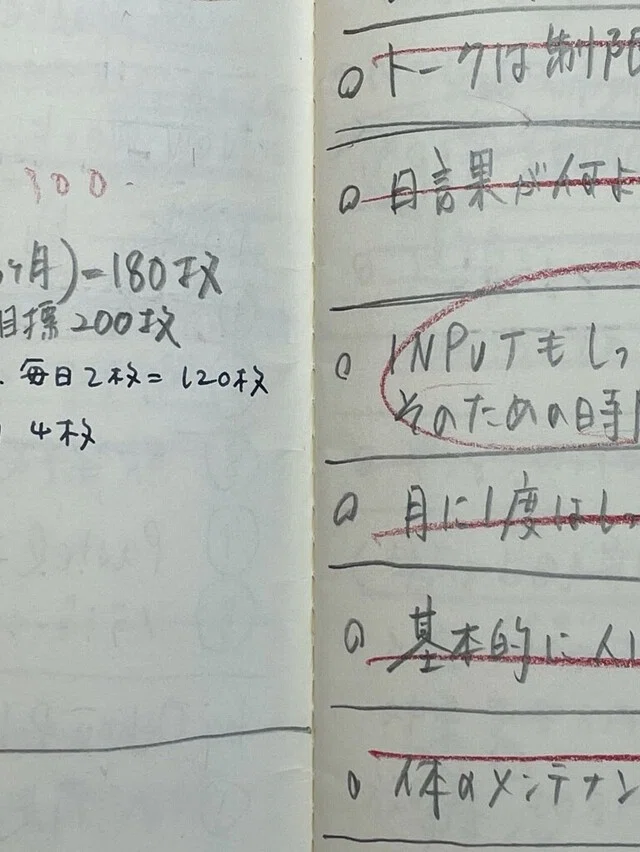 300
ヶ月)=180枚
目標200枚
毎日2枚=120枚
4枚
トークは制限
日言果が何よ
INPUTもしっ
そのための時間
月に1度はし
基本的に人
体のメンテナン